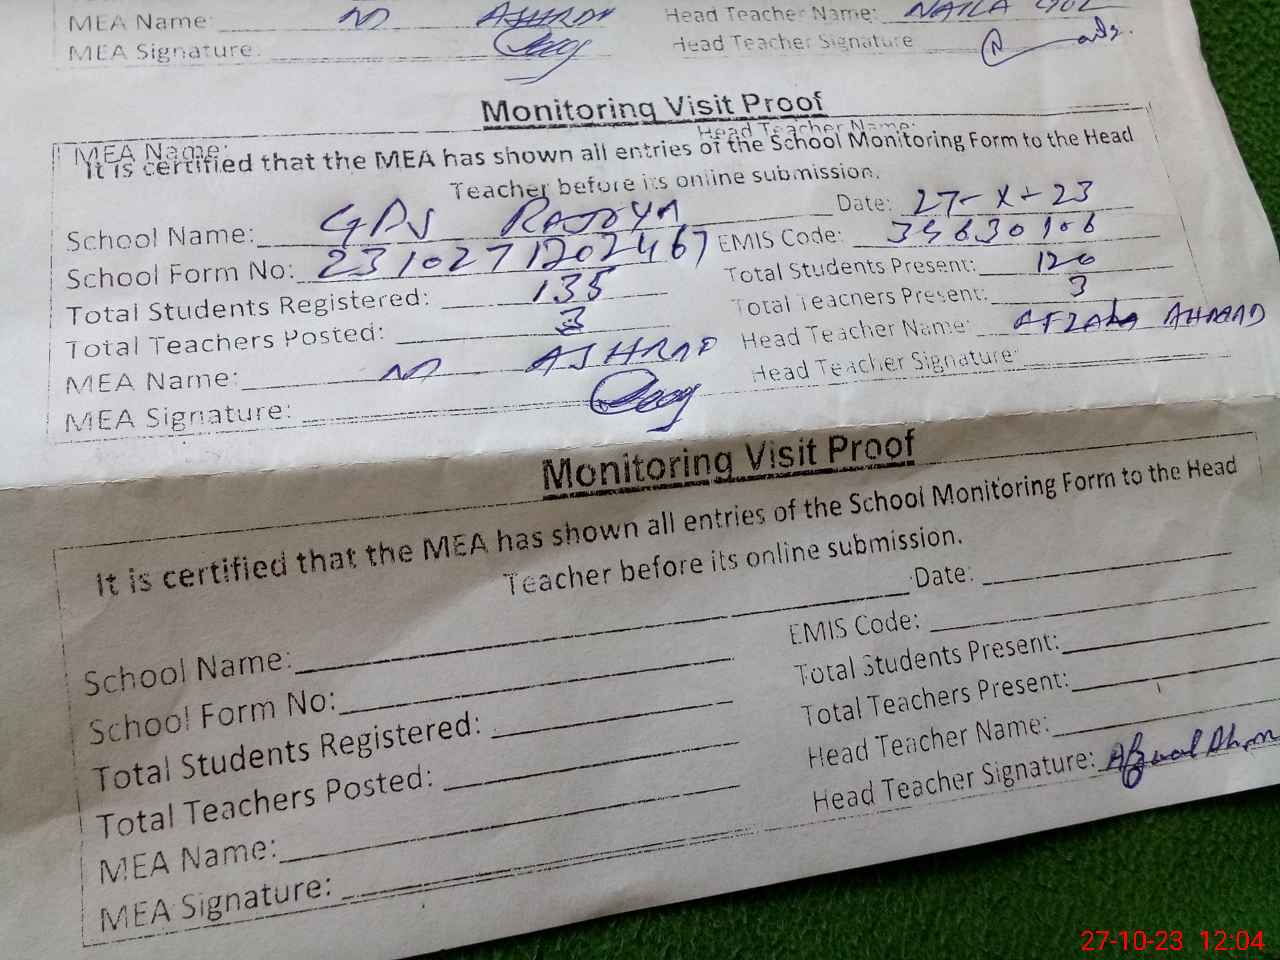 MEA Name: M ASHRAF Head Teacher Name: NAILA GUL
MEA Signature: Head Teacher Signature
Monitoring Visit Proof
MEA Name: Head Teacher Name:
It is certified that the MEA has shown all entries of the School Monitoring Form to the Head
Teacher before its online submission.
School Name: GPS Date: 27-X-23
School Form No: 2310271202467 EMIS Code:
Total Students Registered: 135 Total Students Present: 120
Total Teachers Posted: 3 Total Teachers Present: 3
MEA Name: M ASHRAF Head Teacher Name: AFZAL AHMAD
MEA Signature: Head Teacher Signature:
Monitoring Visit Proof
It is certified that the MEA has shown all entries of the School Monitoring Form to the Head
Teacher before its online submission.
School Name: Date:
School Form No: EMIS Code:
Total Students Registered: Total Students Present:
Total Teachers Posted: Total Teachers Present:
MEA Name: Head Teacher Name:
MEA Signature: Head Teacher Signature: Afzaal Ahmad
27-10-23 12:04